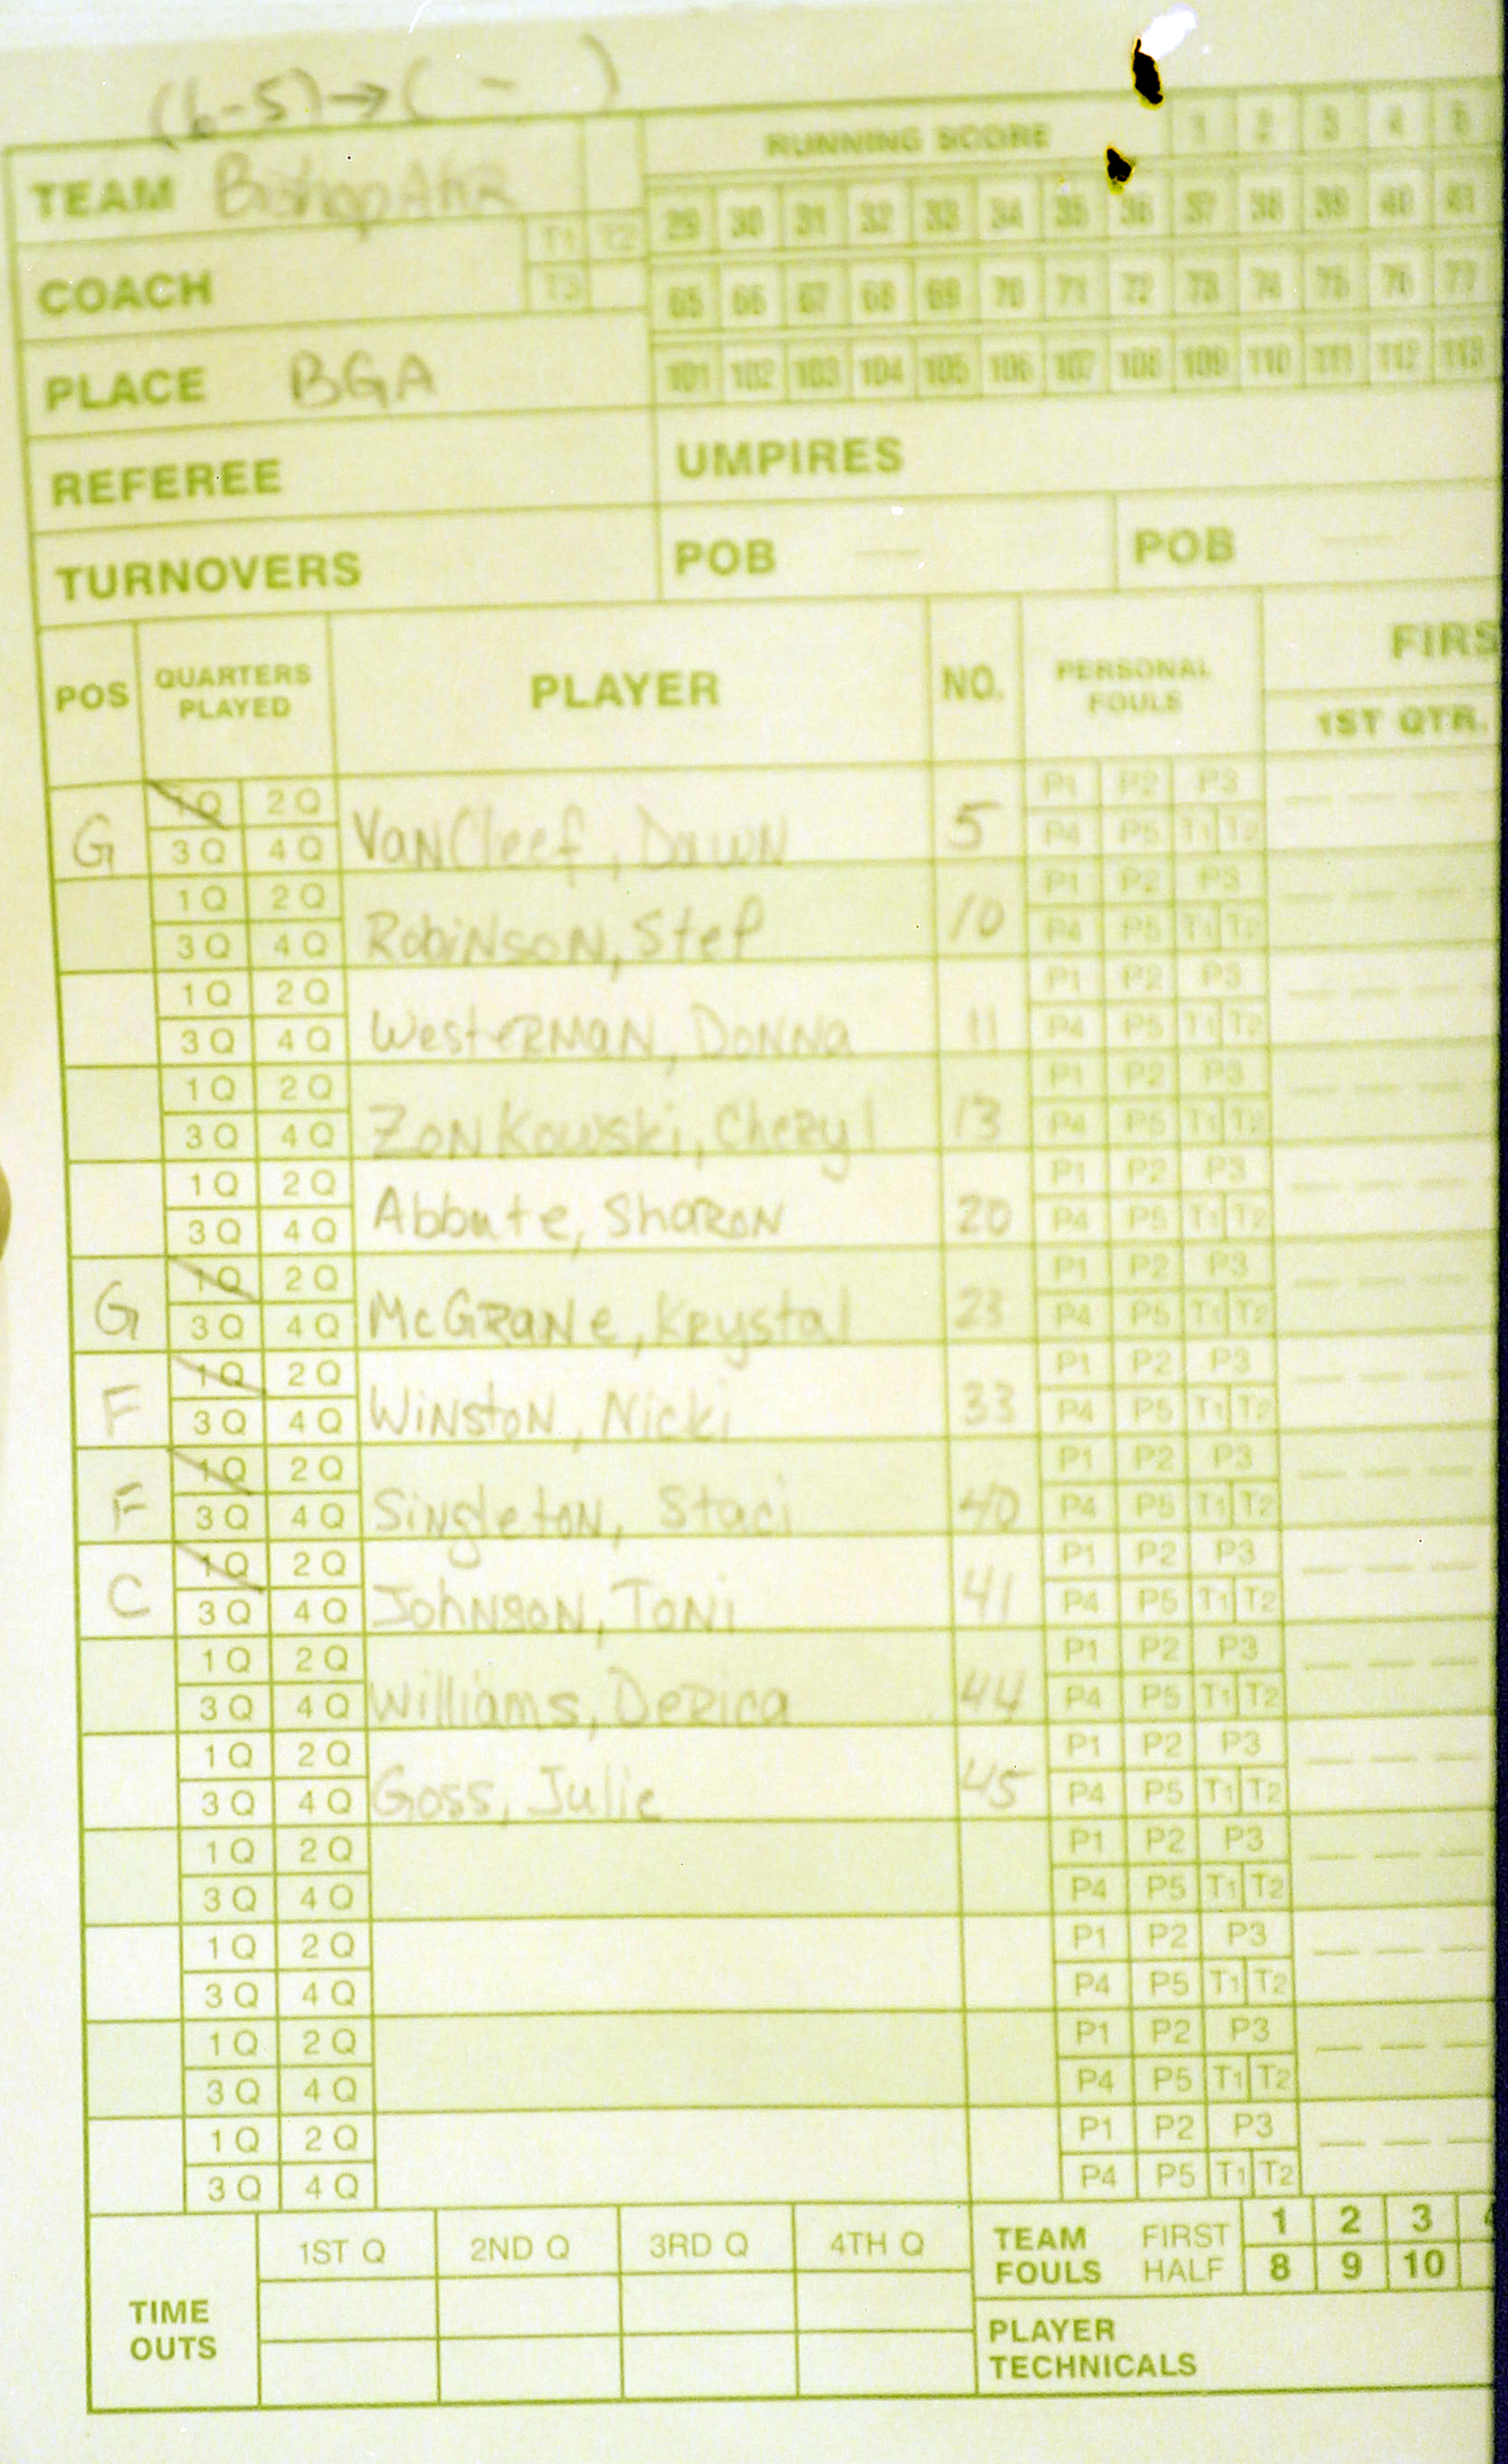 (6-5)→( - )
RUNNING SCORE 1 2 3 4 5
TEAM Bishop Ahr
29 30 31 32 33 34 35 36 37 38 39 40 41
T1 T2
COACH T3
65 66 67 68 69 70 71 72 73 74 75 76 77
PLACE BGA
101 102 103 104 105 106 107 108 109 110 111 112 113
REFEREE UMPIRES
TURNOVERS POB — POB —
POS QUARTERS PLAYED PLAYER NO. PERSONAL FOULS FIRS
1ST QTR.
1Q 2Q P1 P2 P3
G 3Q 4Q VanCleef, Dawn 5 P4 P5 T1 T2
1Q 2Q P1 P2 P3
3Q 4Q Robinson, Stef 10 P4 P5 T1 T2
1Q 2Q P1 P2 P3
3Q 4Q Westerman, Donna 11 P4 P5 T1 T2
1Q 2Q P1 P2 P3
3Q 4Q Zonkowski, Cheryl 13 P4 P5 T1 T2
1Q 2Q P1 P2 P3
3Q 4Q Abbate, Sharon 20 P4 P5 T1 T2
1Q 2Q P1 P2 P3
G 3Q 4Q McGrane, Krystal 23 P4 P5 T1 T2
1Q 2Q P1 P2 P3
F 3Q 4Q Winston, Nicki 33 P4 P5 T1 T2
1Q 2Q P1 P2 P3
F 3Q 4Q Singleton, Staci 40 P4 P5 T1 T2
1Q 2Q P1 P2 P3
C 3Q 4Q Johnson, Toni 41 P4 P5 T1 T2
1Q 2Q P1 P2 P3
3Q 4Q Williams, Derica 44 P4 P5 T1 T2
1Q 2Q P1 P2 P3
3Q 4Q Goss, Julie 45 P4 P5 T1 T2
1Q 2Q P1 P2 P3
3Q 4Q P4 P5 T1 T2
1Q 2Q P1 P2 P3
3Q 4Q P4 P5 T1 T2
1Q 2Q P1 P2 P3
3Q 4Q P4 P5 T1 T2
1Q 2Q P1 P2 P3
3Q 4Q P4 P5 T1 T2
TIME OUTS 1ST Q 2ND Q 3RD Q 4TH Q
TEAM FOULS FIRST HALF 1 2 3
8 9 10
PLAYER TECHNICALS